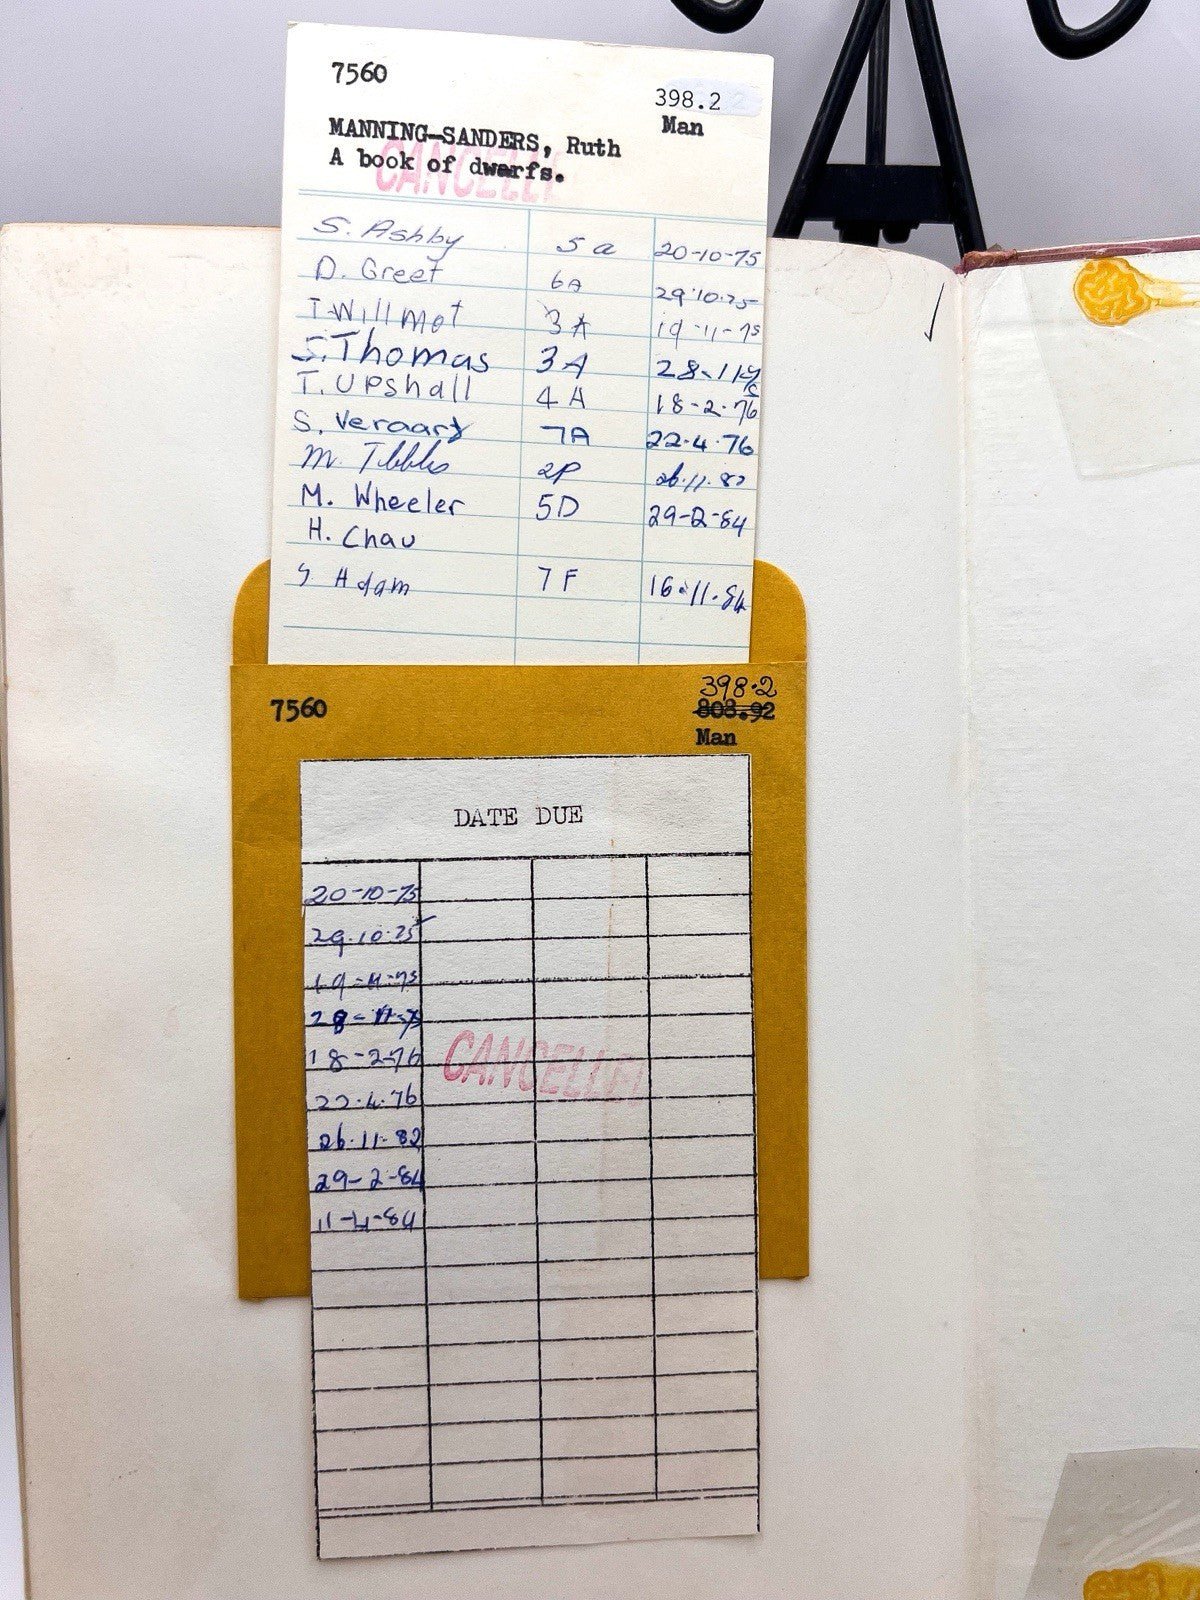 7560
398.2
Man
MANNING-SANDERS, Ruth
A book of dwarfs.
CANCELLE
S. Ashby 5a 20-10-75
D. Greet 6A 29.10.75
T. Willmot 3A 19-11-75
S. Thomas 3A 28.11.75
T. Upshall 4A 18-2-76
S. Veraart 7A 22.4.76
M. Tibbles 2P 26.11.82
M. Wheeler 5D 29-2-84
H. Chau
Adam 7F 16.11.84
7560
398.2
808.92
Man
DATE DUE
20-10-75
29.10.75
19-11-75
28-11-75
18-2-76
CANCELLE
22.4.76
26.11.82
29-2-84
11-4-84